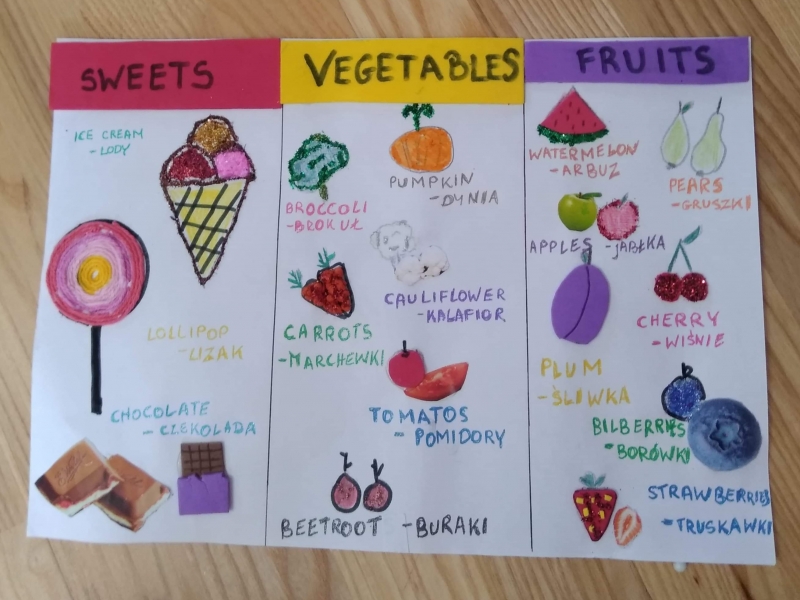 SWEETS
ICE CREAM
- LODY
LOLLIPOP
- LIZAK
CHOCOLATE
- CZEKOLADA
VEGETABLES
BROCCOLI
- BROKUŁ
PUMPKIN
- DYNIA
CAULIFLOWER
- KALAFIOR
CARROTS
- MARCHEWKI
TOMATOS
- POMIDORY
BEETROOT - BURAKI
FRUITS
WATERMELON
- ARBUZ
PEARS
- GRUSZKI
APPLES - JABŁKA
CHERRY
- WIŚNIE
PLUM
- ŚLIWKA
BILBERRIES
- BORÓWKI
STRAWBERRIES
- TRUSKAWKI